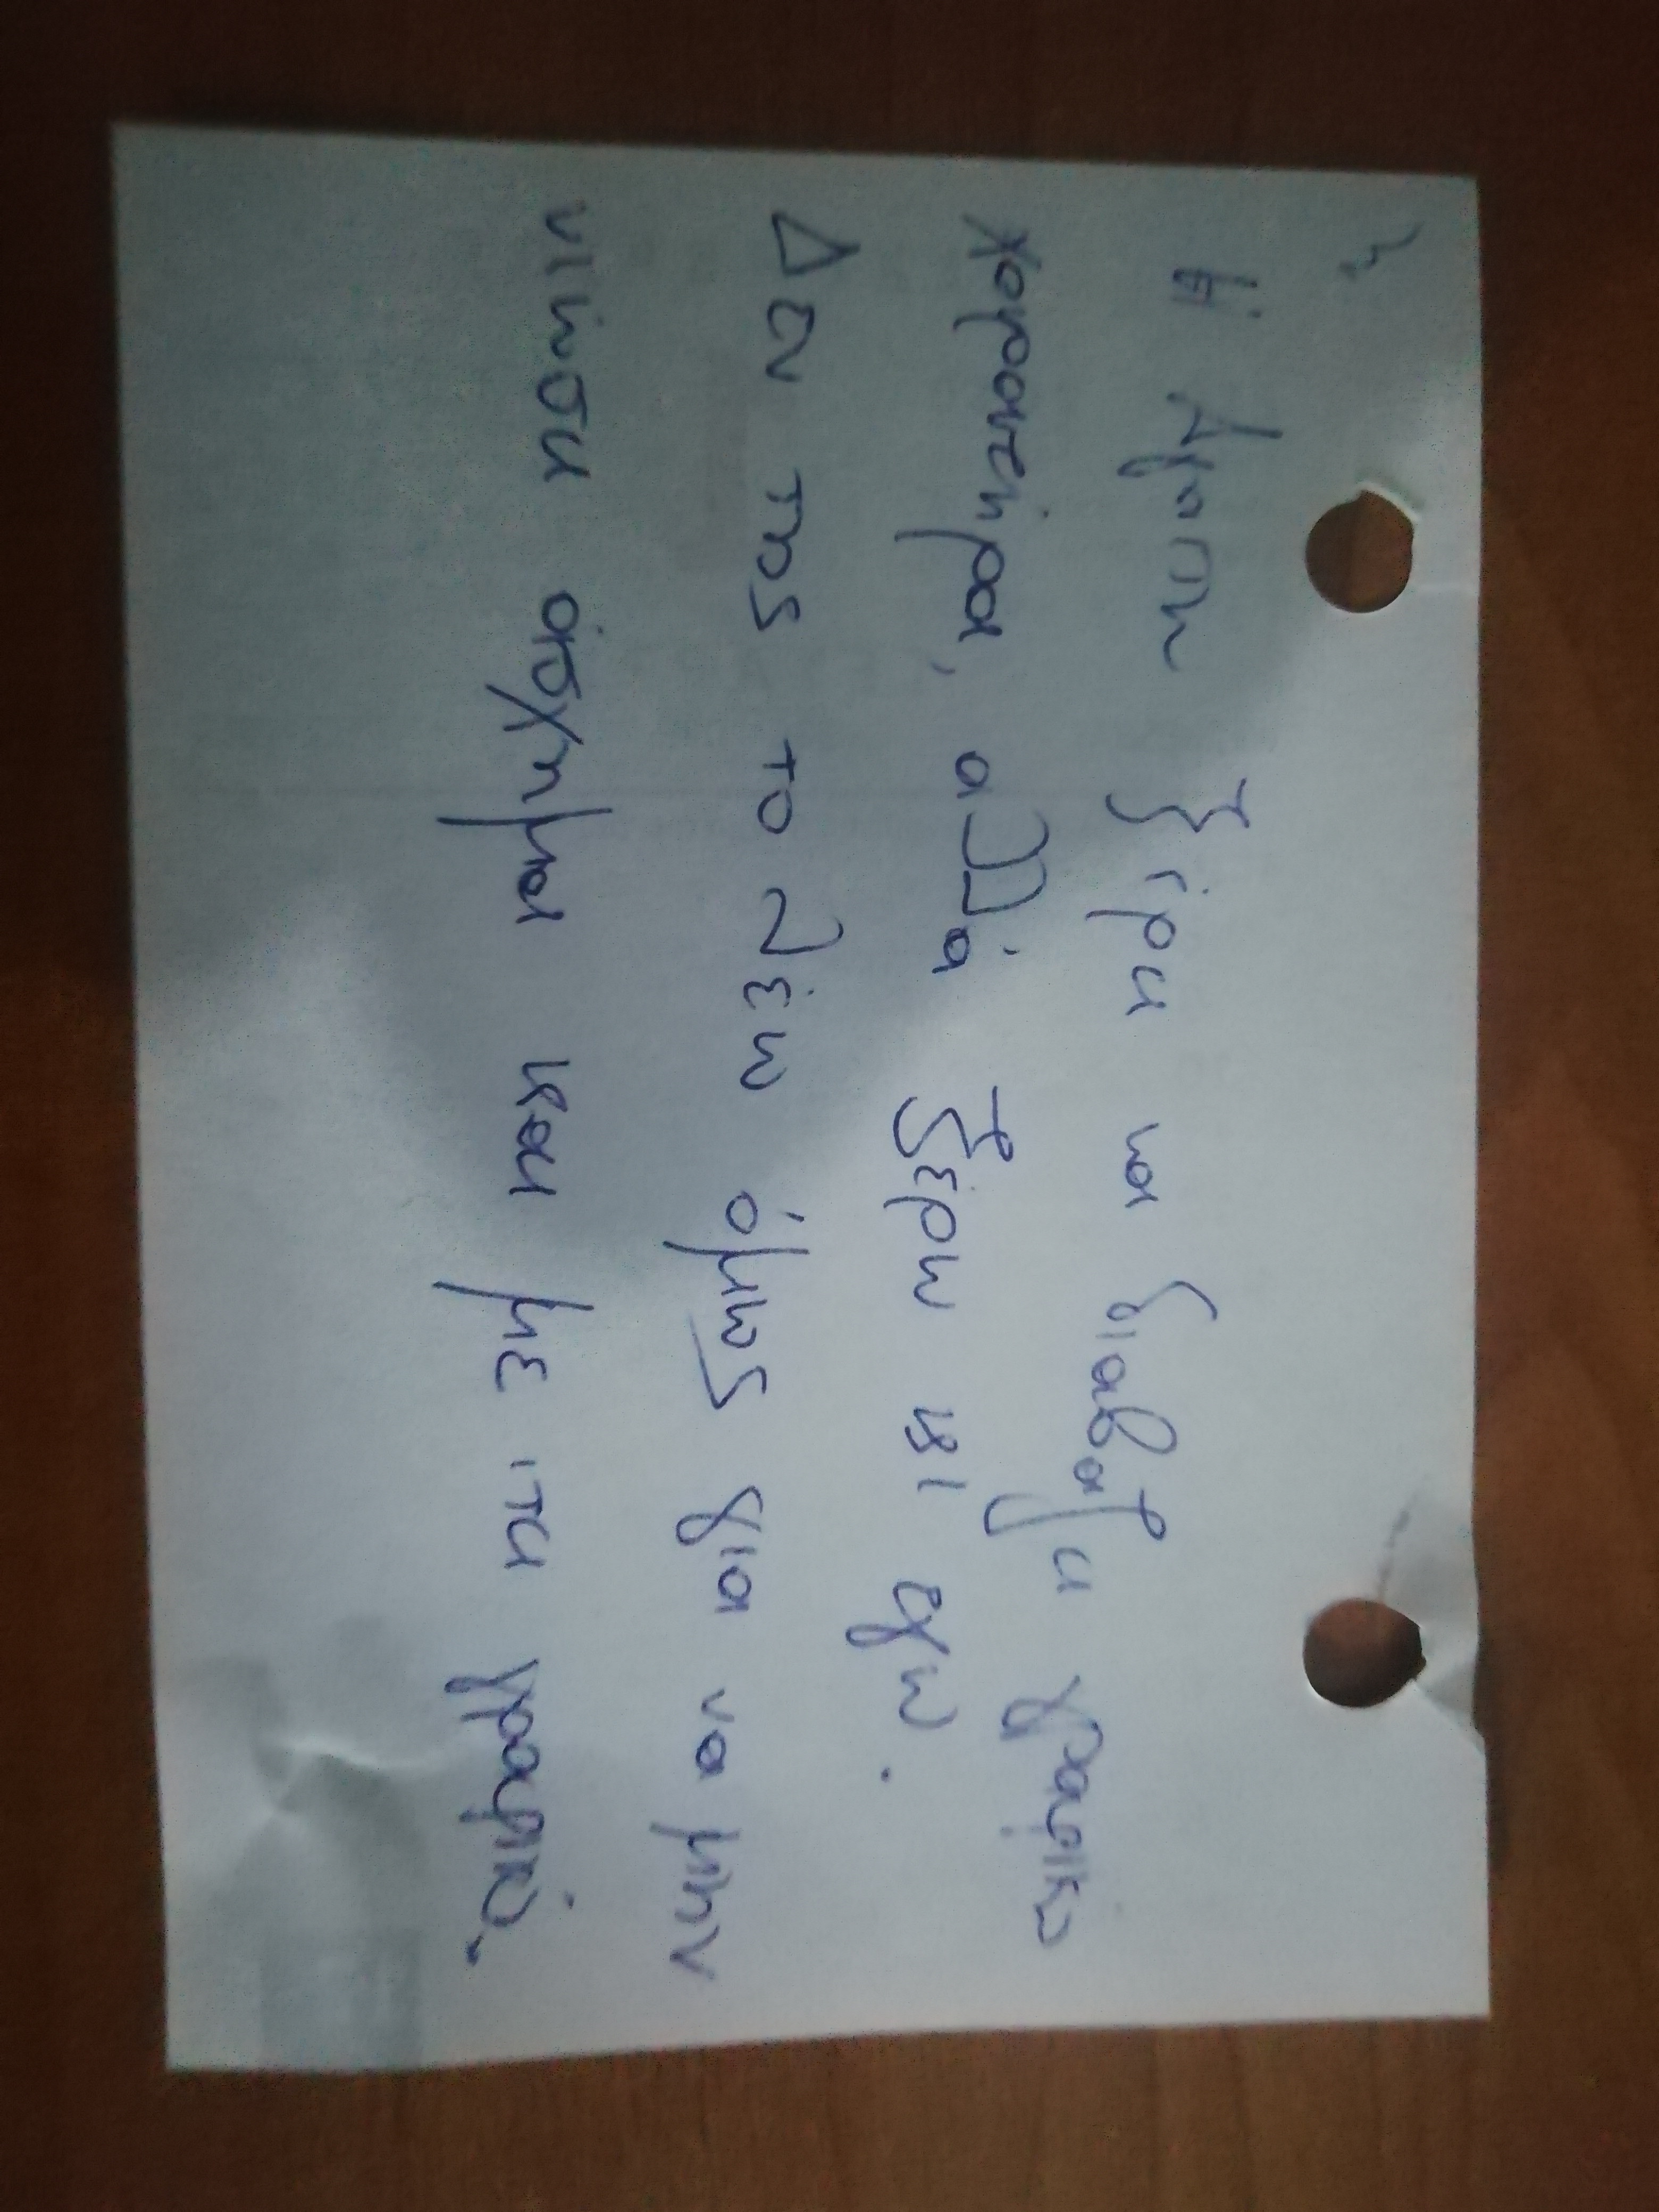 Η ξέρει να διαβάζει γραφικό
χαρακτήρα, αλλά ξέρω κι εγω.
Δεν της το λέω όμως για να μην
νιώσει άσχημα και με πει γραφικό.